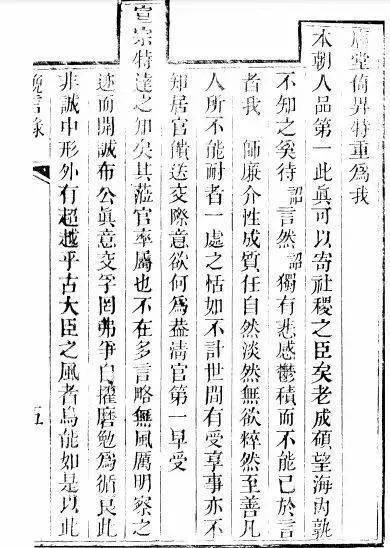 廟堂倚畀特重爲我
本朝人品第一此眞可以寄社稷之臣矣老成碩望海內孰
不知之奚待詔言然詔獨有悲感鬱積而不能已於言
者我 師廉介性成質任自然淡然無欲粹然至善凡
人所不能耐者一處之恬如不計世間有受享事亦不
知居官饋送交際意欲何爲葢淸官第一早受
宣宗特達之知矣其蒞官率屬也不在多言略無風厲明察之
迹而開誠布公眞意交孚罔弗爭自擢磨勉爲循良此
非誠中形外有超越乎古大臣之風者烏能如是以此
言錄
五